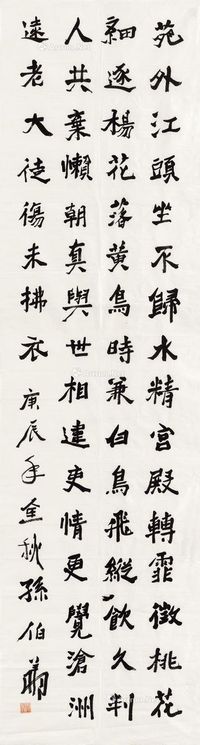 苑外江頭坐不歸水精宮殿轉霏微桃花
細逐楊花落黃鳥時兼白鳥飛縱飲久判
人共棄懶朝真與世相違吏情更覺滄洲
遠老大徒傷未拂衣庚辰年金秋孫伯翔